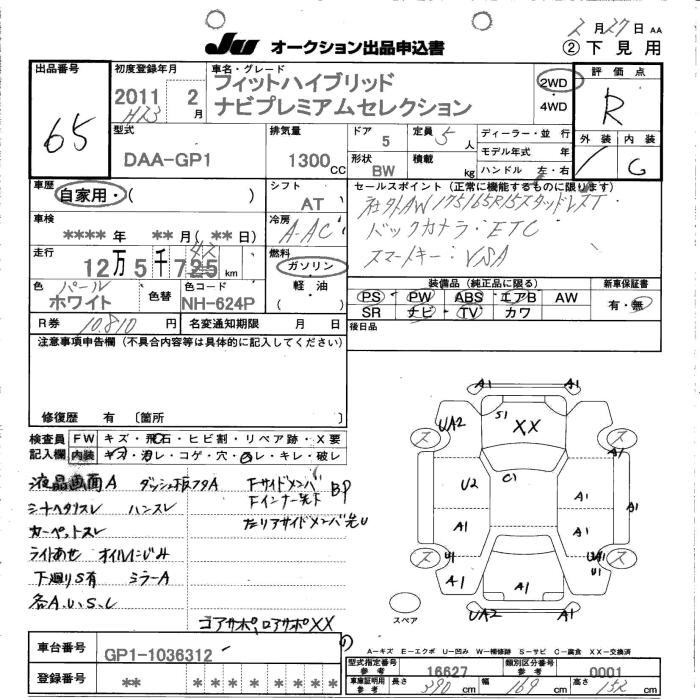 2月27日 AA
Ju オークション出品申込書 ②下見用
出品番号 初度登録年月 車名・グレード 評価点
65
2011 2月 H23
フィットハイブリッド
ナビプレミアムセレクション
2WD
・
4WD
R
外装 内装
/ C
型式 排気量 ドア 5 定員 5人 ディーラー・並行
DAA-GP1 1300cc
形状 BW 積載 kg モデル年式 年
ハンドル 左・右
車歴 自家用・( )
シフト AT
セールスポイント (正常に機能するものに限ります)
社外AW 175/65R15スタッドレスT
バックカメラ・ETC
スマートキー・VSA
車検 **** 年 ** 月 ( ** 日)
冷房 A-AC
走行 12万5千725km 42
燃料 ガソリン・軽油・( )
色 パールホワイト 色替 色コード NH-624P
装備品 (純正品に限る) 新車保証書
PS PW ABS エアB AW 有・無
SR ナビ TV カワ
R券 10,810円 名変通知期限 月 日
後日品
注意事項申告欄 (不具合内容等は具体的に記入してください)
修復歴 有 〔箇所 〕
検査員記入欄 FW キズ・飛石・ヒビ割・リペア跡・X要
内装 キズ・汚レ・コゲ・穴・切レ・キレ・破レ
液晶画面A ダッシュ板フタA FサイドメンバBP
シートヘタリスレ ハンスレ Fインナー先下
カーペットスレ 左リアサイドメンバ先U
ライトあせ オイルにじみ
下廻りS有 ミラーA
各A.U.S.L
コアサポ,ロアサポXX
A1 A1
UA2 S1 XX
ス ス
A1
U2 C1
A1 A1
A1 A1
ス U1 UA1 ス
U1
A1 A1
UA2 A1
スペア
A-キズ E-エクボ U-凹み W-補修跡 S-サビ C-腐食 XX-交換済
車台番号 GP1-1036312
登録番号 ** * * * * * * * *
型式指定番号 参考 16627 類別区分番号 参考 0001
車庫証明用 参考 長さ 390cm 幅 169cm 高さ 152cm